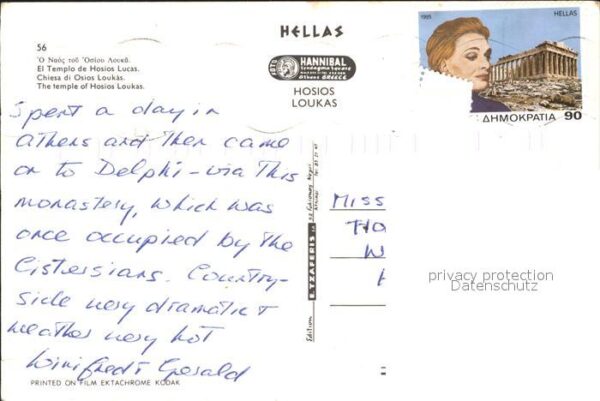 HELLAS
1995 HELLAS
ΔΗΜΟΚΡΑΤΙΑ 90
56
Ὁ Ναός τοῦ Ὁσίου Λουκᾶ.
El Templo de Hosios Lucas.
Chiesa di Osios Loukás.
The temple of Hosios Loukas.
HANNIBAL
Syndagma Square
Athens GREECE
HOSIOS
LOUKAS
Spent a day in
Athens and then came
on to Delphi - via this
monastery, which was
once occupied by the
Cistersians. Country-
side very dramatic &
weather very hot
Winifred & Gerald
Edition E. TZAFERIS
MISS
HO
W
privacy protection
Datenschutz
PRINTED ON FILM EKTACHROME KODAK